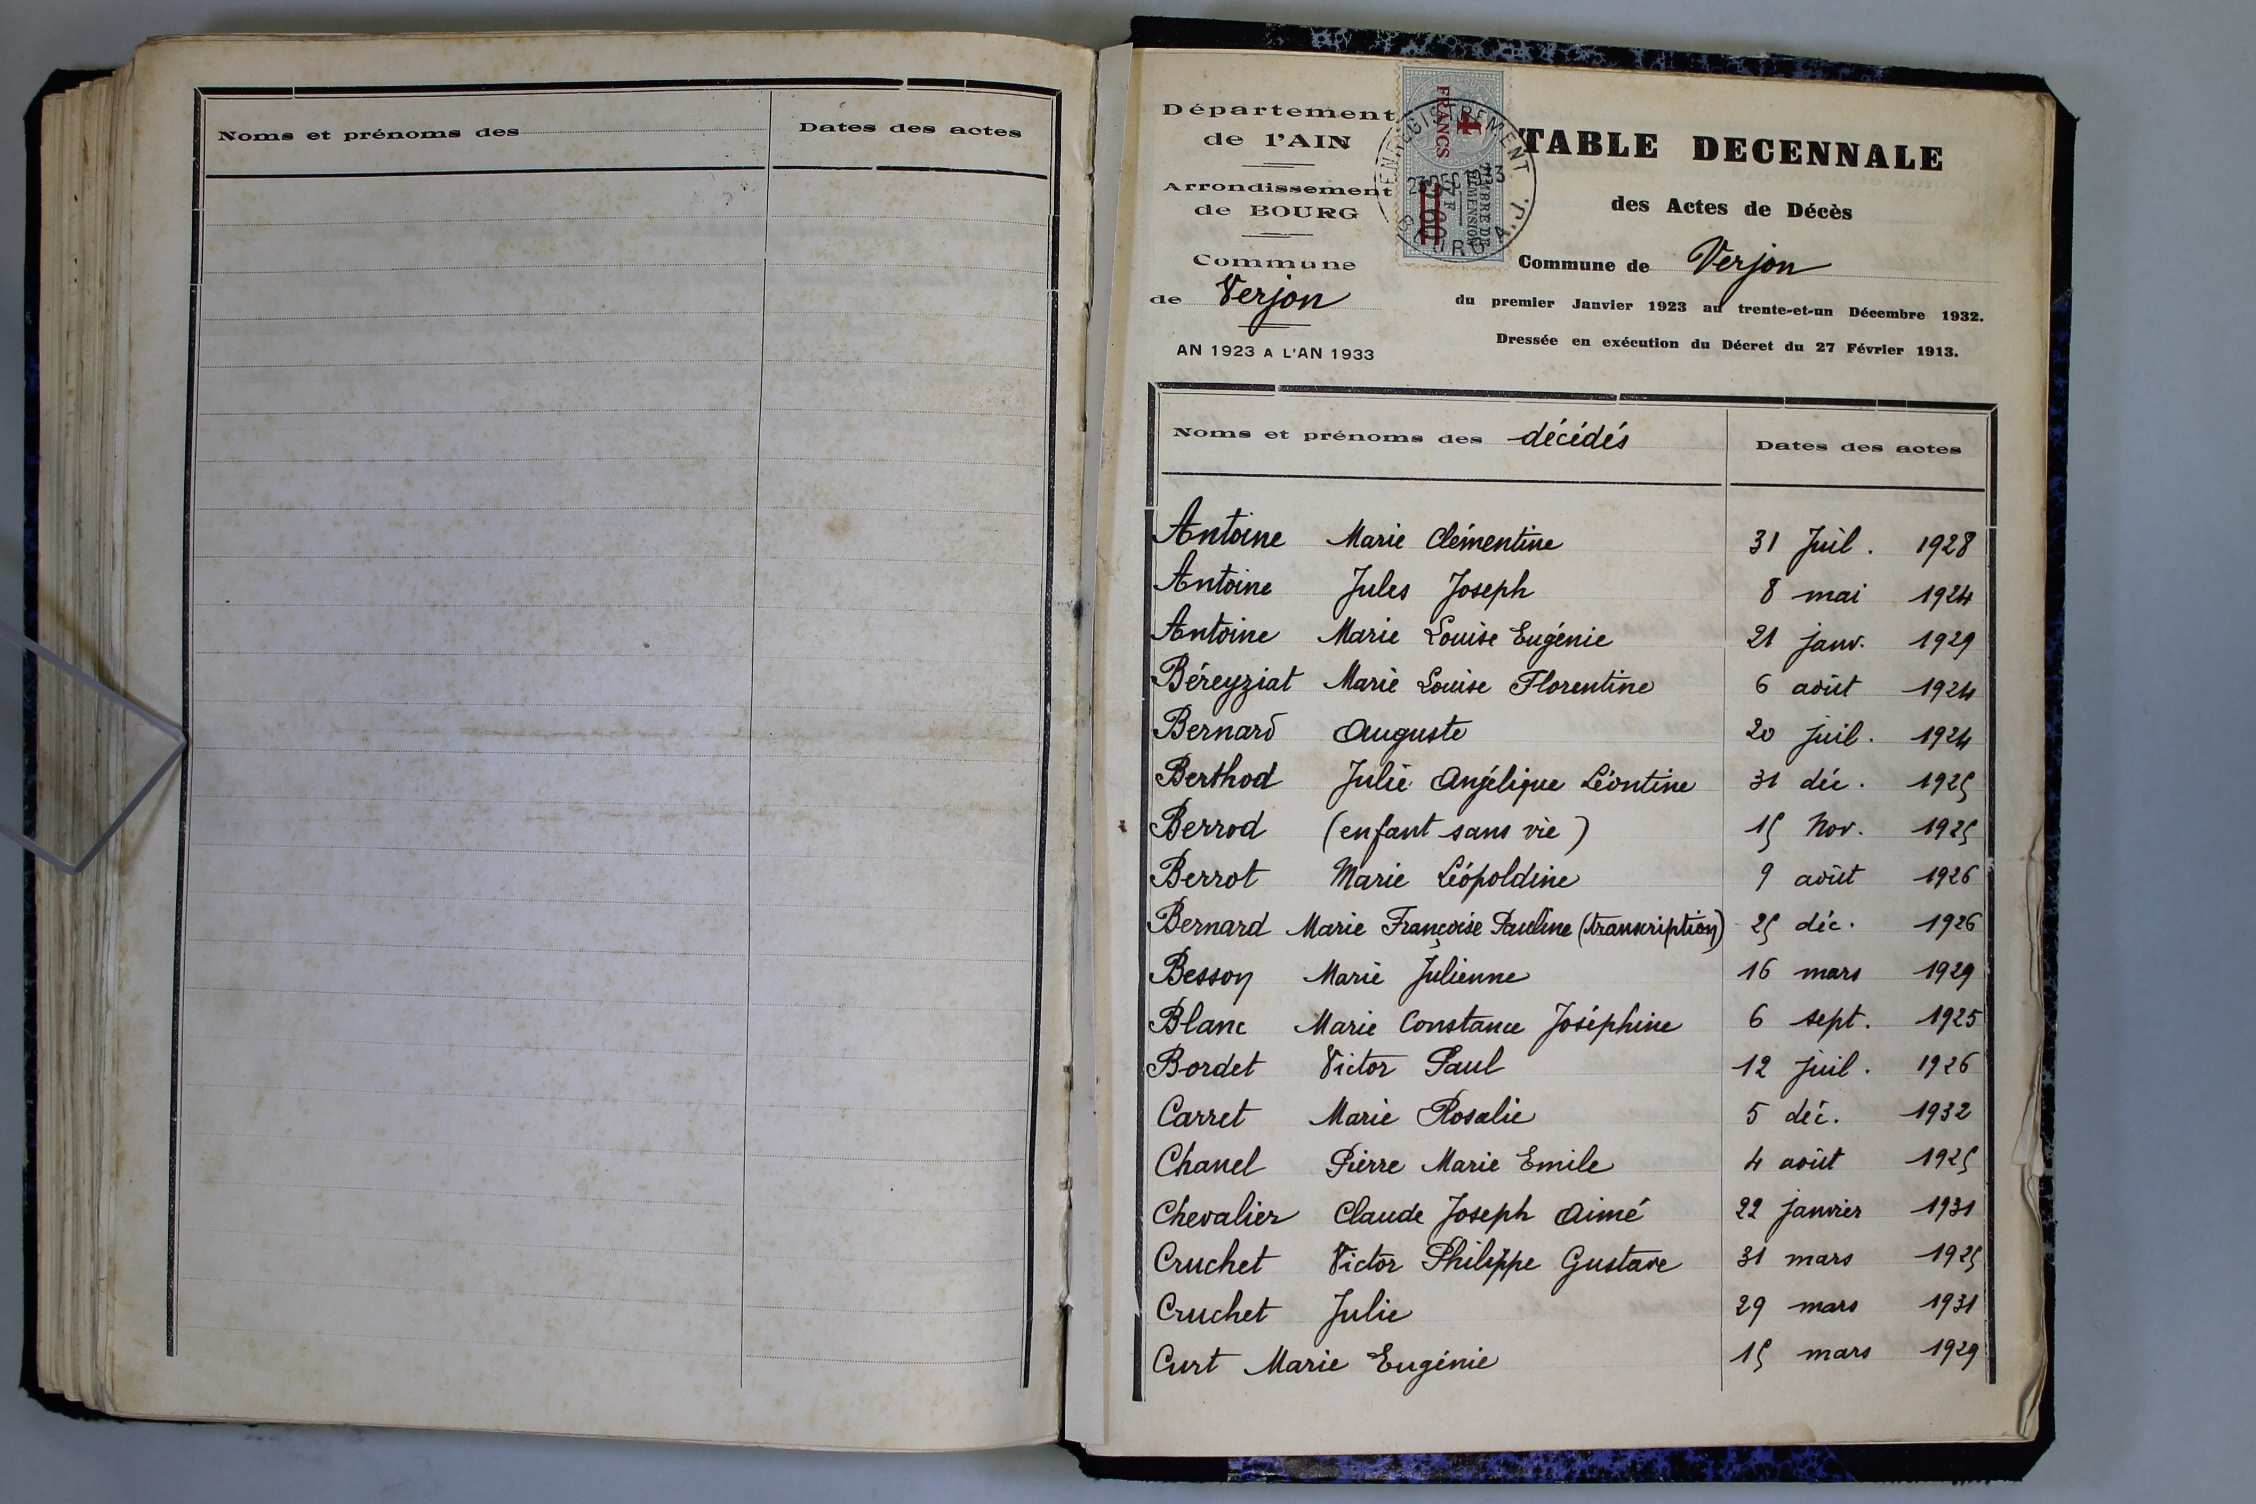 Noms et prénoms des
Dates des actes
Département
de l'AIN
Arrondissement
de BOURG
Commune
de Verjon
AN 1923 A L'AN 1933
4
FRANCS
ENREGISTREMENT
23 DEC 1933
TIMBRE DE
DIMENSION
BOURG A.J.
TABLE DECENNALE
des Actes de Décès
Commune de Verjon
du premier Janvier 1923 au trente-et-un Décembre 1932.
Dressée en exécution du Décret du 27 Février 1913.
Noms et prénoms des décédés
Dates des actes
Antoine Marie Clémentine 31 Juil. 1928
Antoine Jules Joseph 8 mai 1924
Antoine Marie Louise Eugénie 21 janv. 1929
Béreyziat Marie Louise Florentine 6 août 1924
Bernard Auguste 20 juil. 1924
Berthod Julie Angélique Léontine 31 déc. 1925
Berrod (enfant sans vie) 15 Nov. 1925
Berrot Marie Léopoldine 9 août 1926
Bernard Marie Françoise Pauline (transcription) 25 déc. 1926
Besson Marie Julienne 16 mars 1929
Blanc Marie Constance Joséphine 6 sept. 1925
Bordet Victor Paul 12 juil. 1926
Carret Marie Rosalie 5 déc. 1932
Chanel Pierre Marie Emile 4 août 1925
Chevalier Claude Joseph Aimé 22 janvier 1931
Cruchet Victor Philippe Gustave 31 mars 1925
Cruchet Julie 29 mars 1931
Curt Marie Eugénie 15 mars 1929